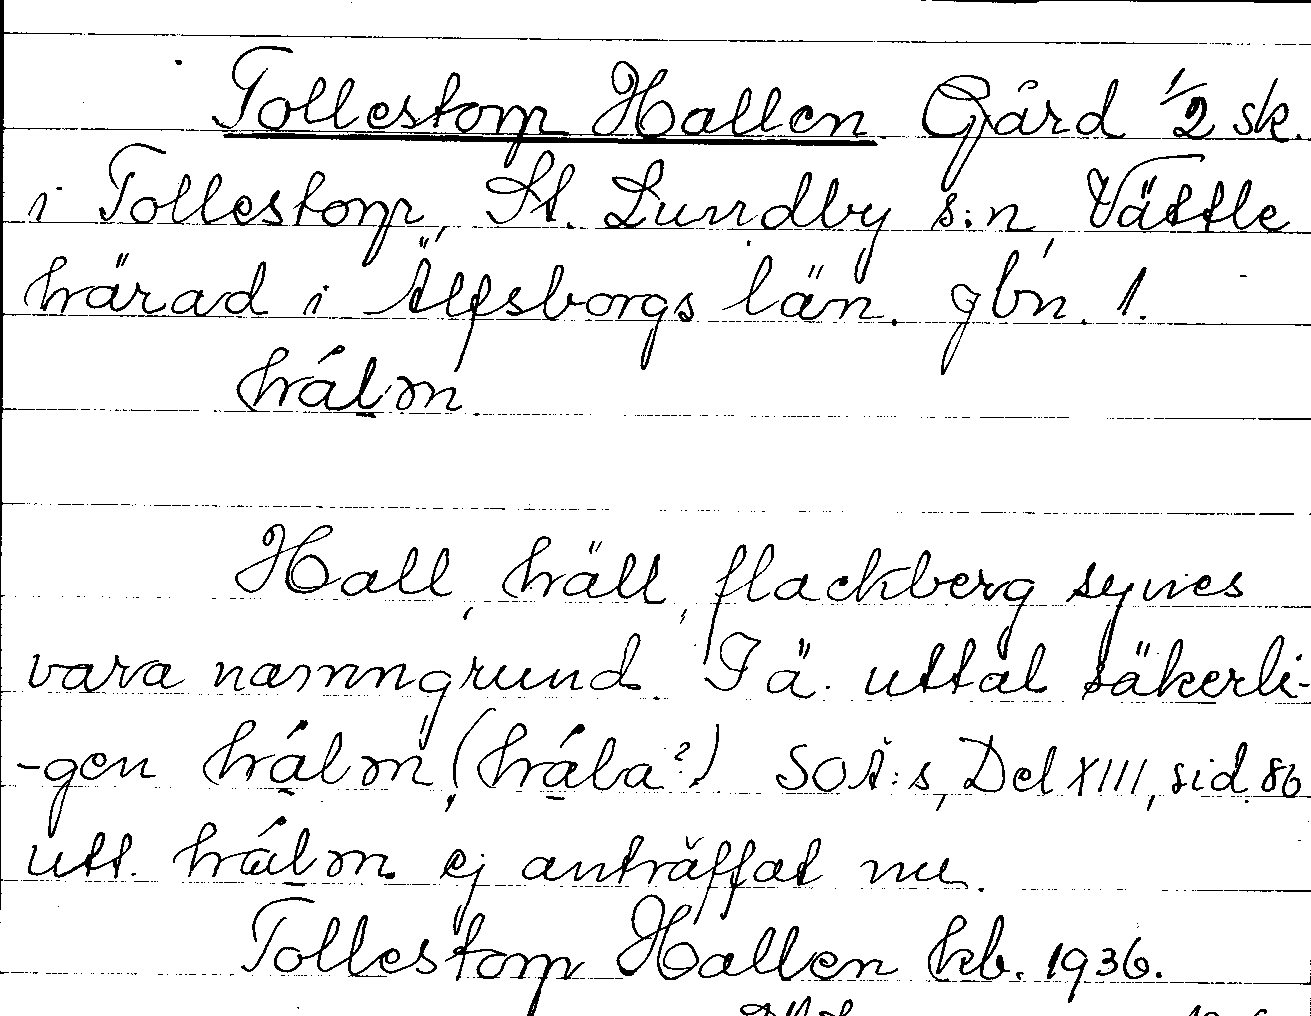 Tollestorp Hallen. Gård 1/2 sk.
i Tollestorp, St. Lundby s:n, Vättle
härad i Älfsborgs län. gbn. 1.
hálm.
Hall, häll, flackberg synes
vara namngrund. I ä. uttal säkerli-
-gen hálm, (hála?) SOÄ:s, Del XIII, sid. 86
utt. hálm ej anträffat nu.
Tollestorp Hallen kb. 1936.